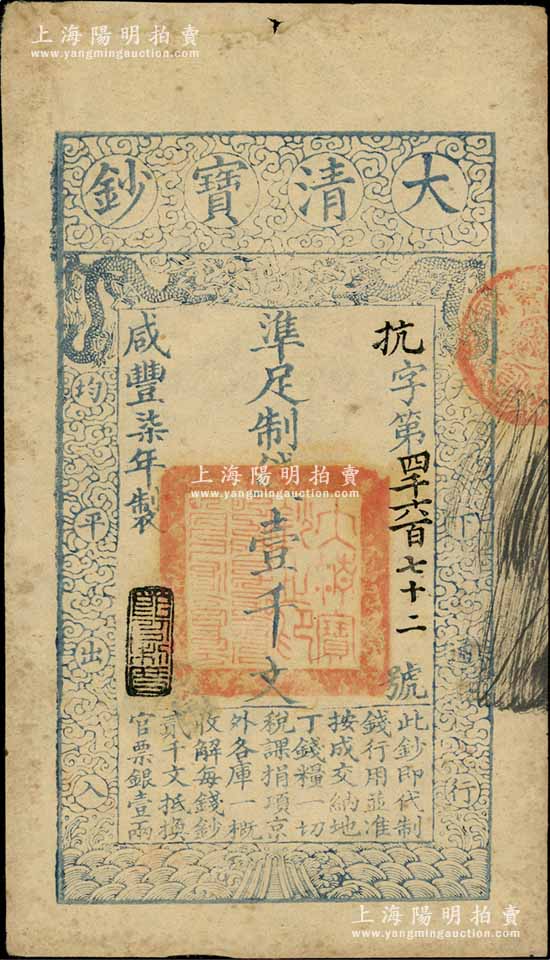 上海陽明拍賣
www.yangmingauction.com
大清寶鈔
天下通行
均平出入
抗字第四千六百七十二號
準足制錢壹千文
咸豐柒年製
上海陽明拍賣
www.yangmingauction.com
此鈔即代制
錢行用並准
按成交納地
丁錢糧一切
稅課捐項京
外各庫一概
收解每錢鈔
貳千文抵換
官票銀壹兩
上海陽明拍賣
www.yangmingauction.com